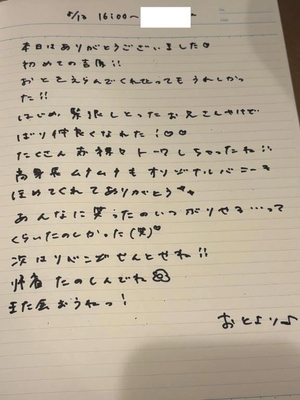 5/13 16:00〜
本日はありがとうございました♡
初めての吉原!!
おとをえらんでくれとってもうれしかっ
た!!
はじめ、緊張しとったお兄さんやけど
ばり仲良くなれた!♡♡
たくさん赤裸々トークしちゃったね!!
高身長ムチムチもオリジナルバニーも
ほめてくれてありがとう
あんなに笑ったのいつぶりやろ…って
くらいたのしかった(笑)
次はリベンジせんとせね!!
帰省たのしんでね
また会おうねっ!
おとより♪